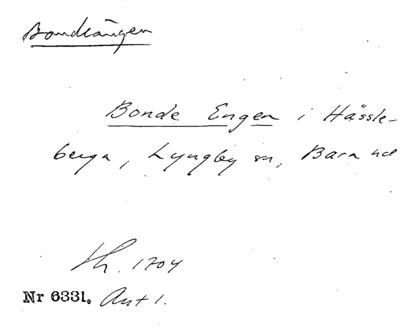 Bondeängen
Bonde Engen i Hässle-
berga, Lyngby sn, Bara hd
Lh. 1704
Nr 6331. Ant 1.